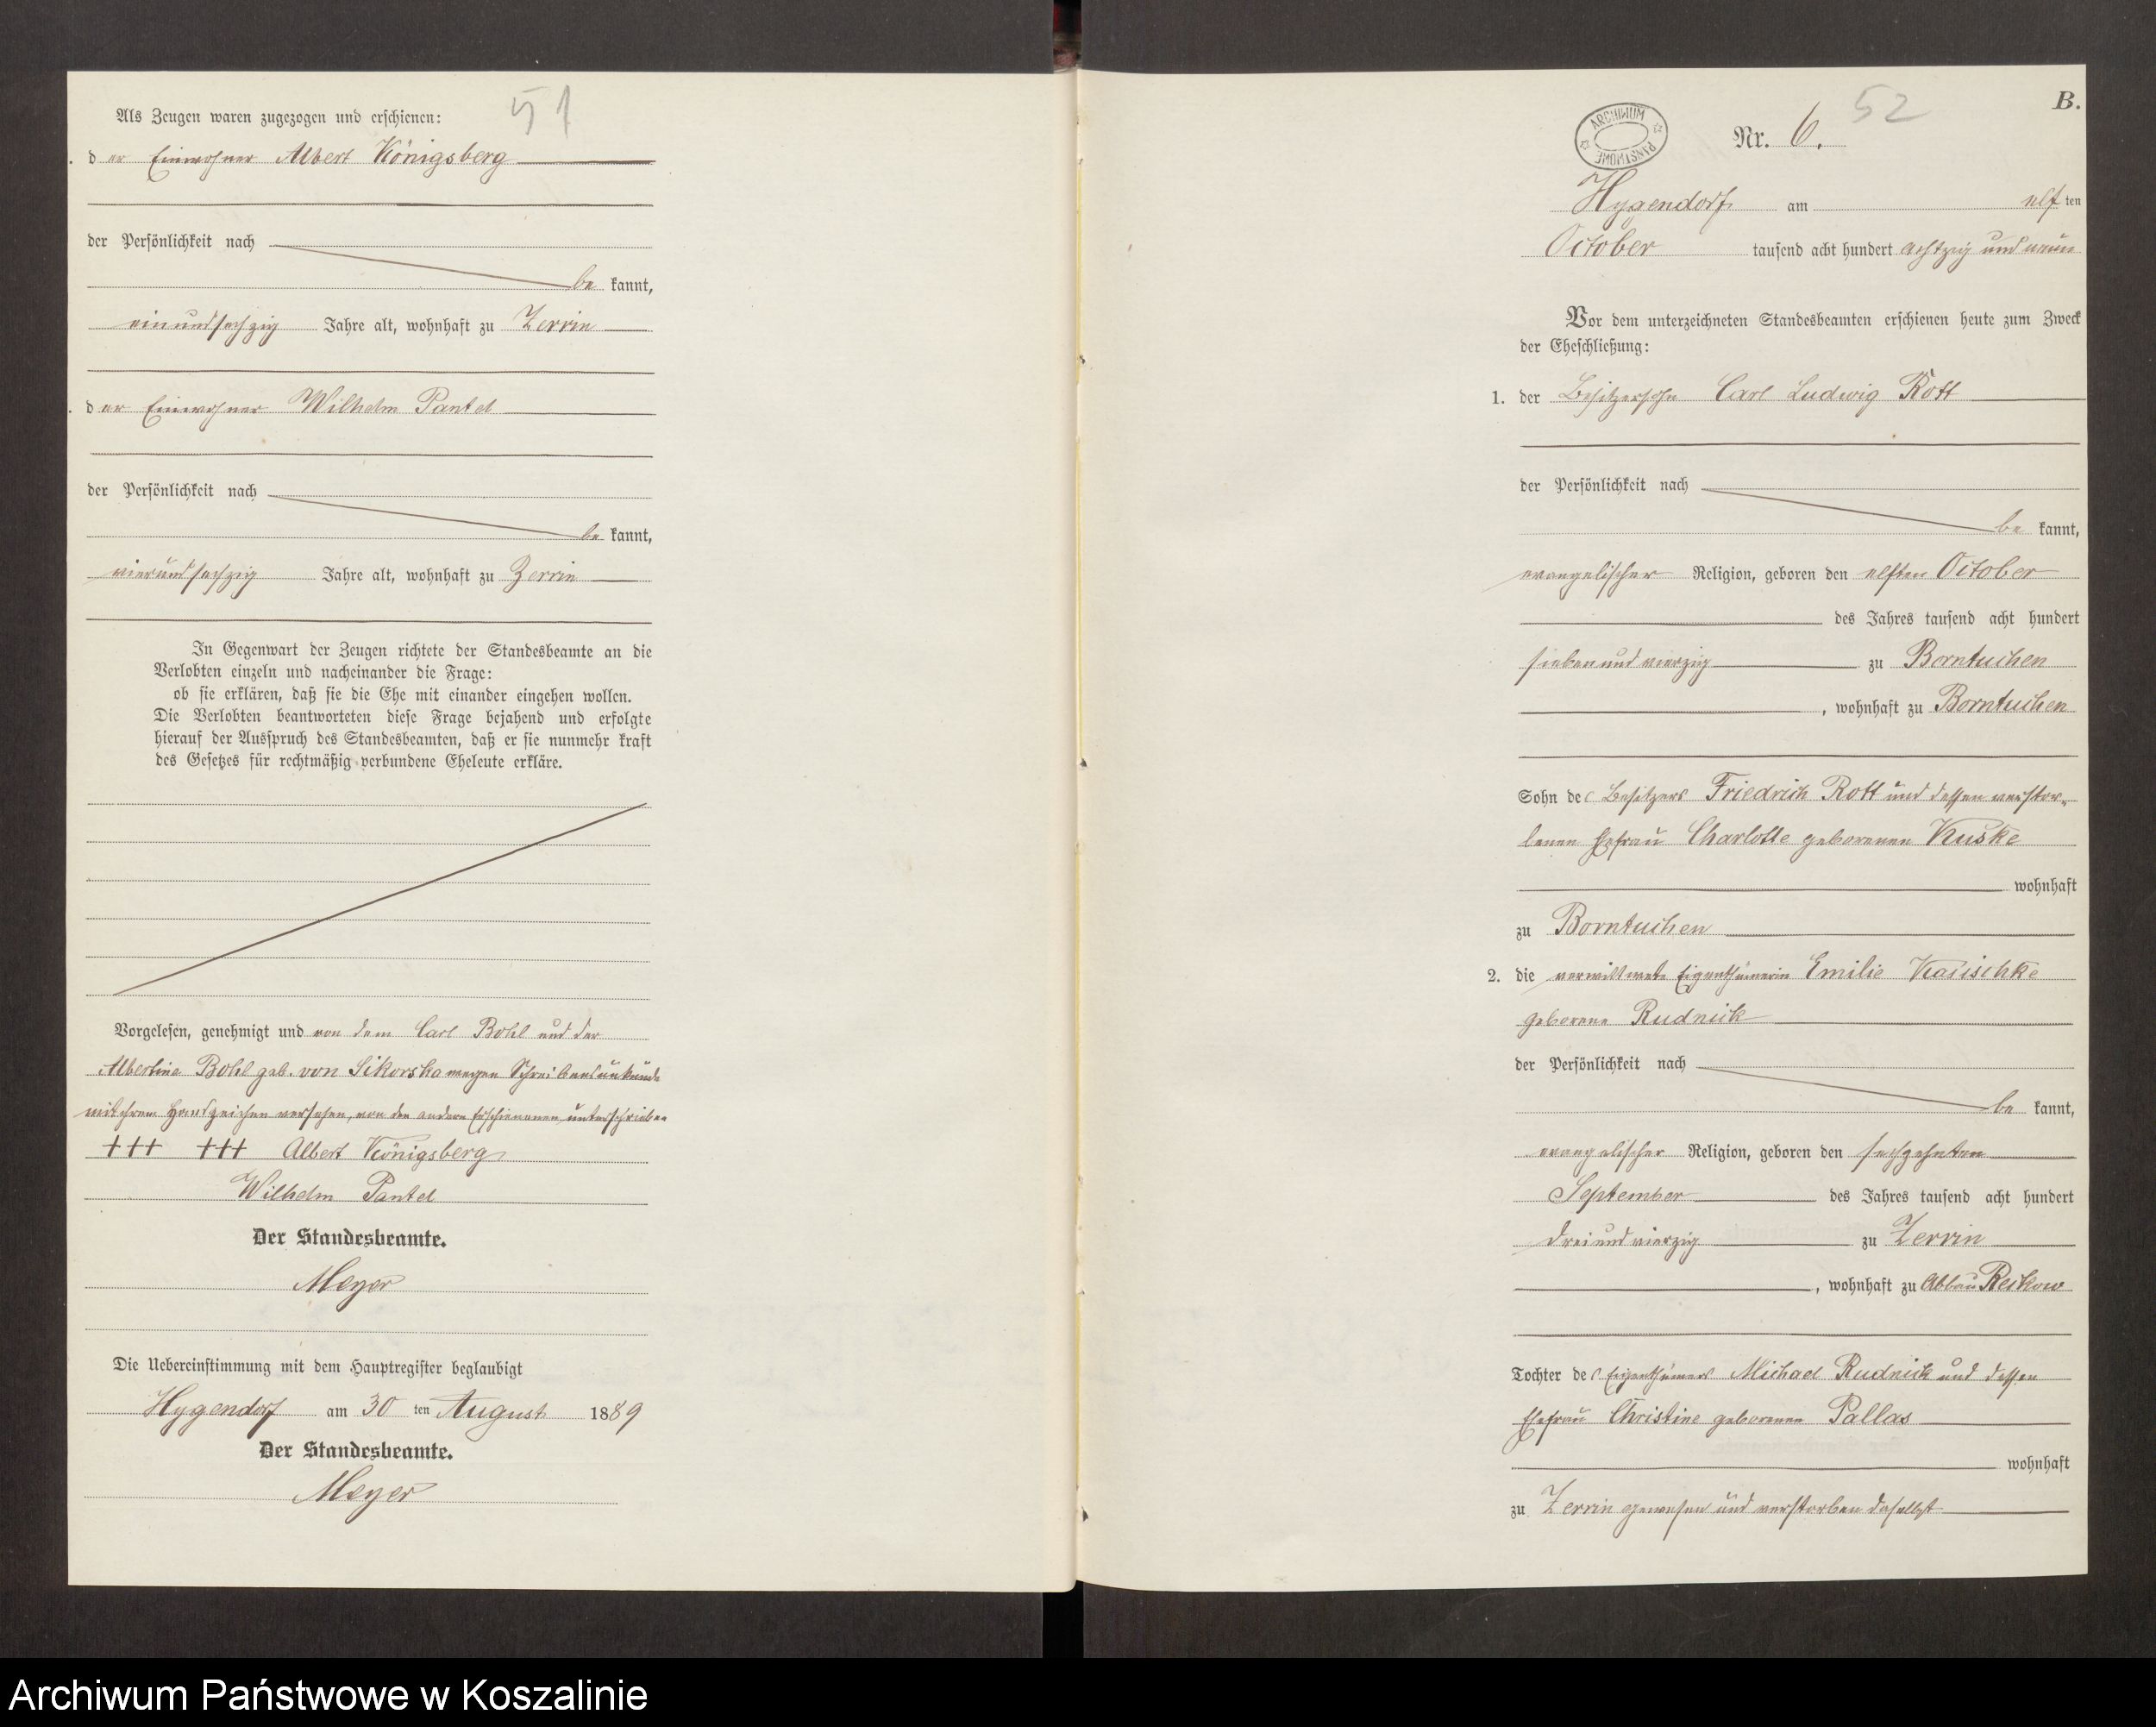 51
Als Zeugen waren zugezogen und erschienen:
. der Einwohner Albert Königsberg
der Persönlichkeit nach
be kannt,
einundsechzig Jahre alt, wohnhaft zu Zerrin
. der Einwohner Wilhelm Pantel
der Persönlichkeit nach
be kannt,
vierundsechzig Jahre alt, wohnhaft zu Zerrin
In Gegenwart der Zeugen richtete der Standesbeamte an die
Verlobten einzeln und nacheinander die Frage:
ob sie erklären, daß sie die Ehe mit einander eingehen wollen.
Die Verlobten beantworteten diese Frage bejahend und erfolgte
hierauf der Ausspruch des Standesbeamten, daß er sie nunmehr kraft
des Gesetzes für rechtmäßig verbundene Eheleute erkläre.
Vorgelesen, genehmigt und von dem Carl Bohl und der
Albertine Bohl geb. von Sikorska wegen Schreibensunkunde
mit ihrem Handzeichen versehen, von den andern Erschienenen unterschrieben
+++ +++ Albert Königsberg
Wilhelm Pantel
Der Standesbeamte.
Meyer
Die Uebereinstimmung mit dem Hauptregister beglaubigt
Hygendorf am 30 ten August 1889
Der Standesbeamte.
Meyer
B.
52
ARCHIWUM PAŃSTWOWE
Nr. 6.
Hygendorf am elf ten
October tausend acht hundert achtzig und neun
Vor dem unterzeichneten Standesbeamten erschienen heute zum Zweck
der Eheschließung:
1. der Besitzersohn Carl Ludwig Rott
der Persönlichkeit nach
be kannt,
evangelischer Religion, geboren den elften October
des Jahres tausend acht hundert
sieben und vierzig zu Borntuchen
, wohnhaft zu Borntuchen
Sohn des Besitzers Friedrich Rott und dessen verstor-
benen Ehefrau Charlotte geborenen Kuske
wohnhaft
zu Borntuchen
2. die verwittwete Eigenthümerin Emilie Kasischke
geborene Rudnick
der Persönlichkeit nach
be kannt,
evangelischer Religion, geboren den sechzehnten
September des Jahres tausend acht hundert
drei und vierzig zu Zerrin
, wohnhaft zu Abbau Reckow
Tochter des Eigenthümers Michael Rudnick und dessen
Ehefrau Christine geborenen Pallas
wohnhaft
zu Zerrin gewesen und verstorben daselbst
Archiwum Państwowe w Koszalinie